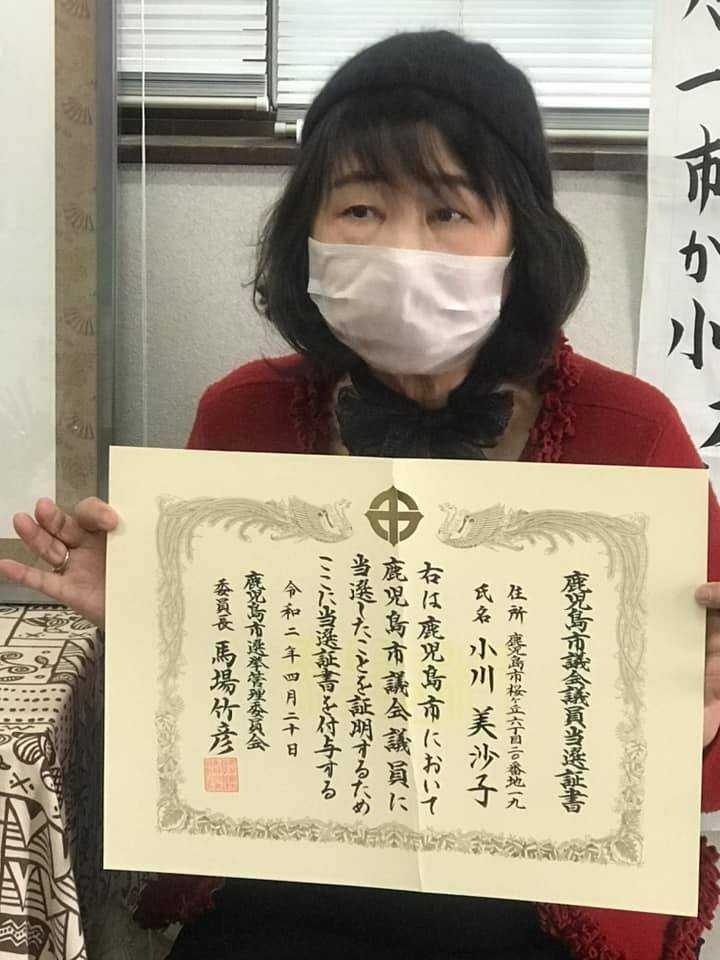 鹿児島市議会議員当選証書
住所 鹿児島市桜ヶ丘六丁目二〇番地一九
氏名 小川美沙子
右は鹿児島市において
鹿児島市議会議員に
当選したことを証明するため
ここに当選証書を付与する
令和二年四月二十日
鹿児島市選挙管理委員会
委員長 馬場竹彦
一刺か小